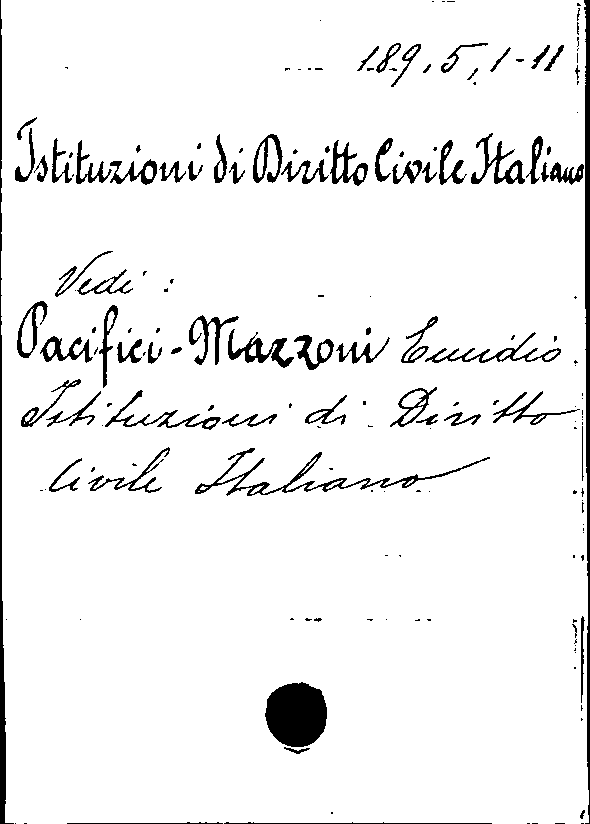 189, 5, 1-11
Istituzioni di Diritto Civile Italiano
Vedi :
Pacifici-Mazzoni Emidio
Istituzioni di Diritto
Civile Italiano